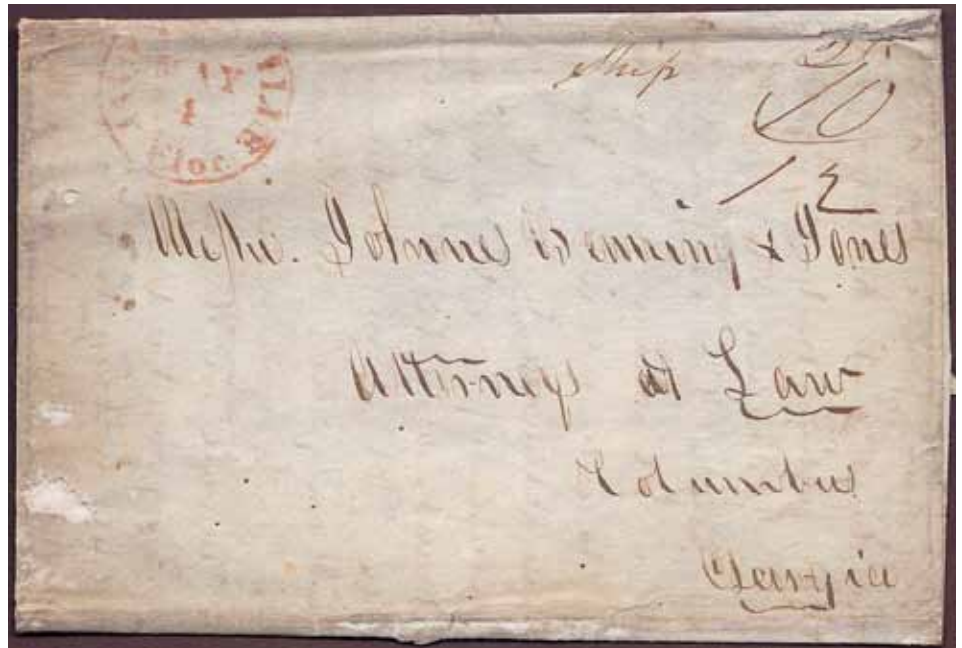 Ship
10
12
Messrs. Johnes Benning & Jones
Attorneys at Law
Columbus
Georgia
Flor.